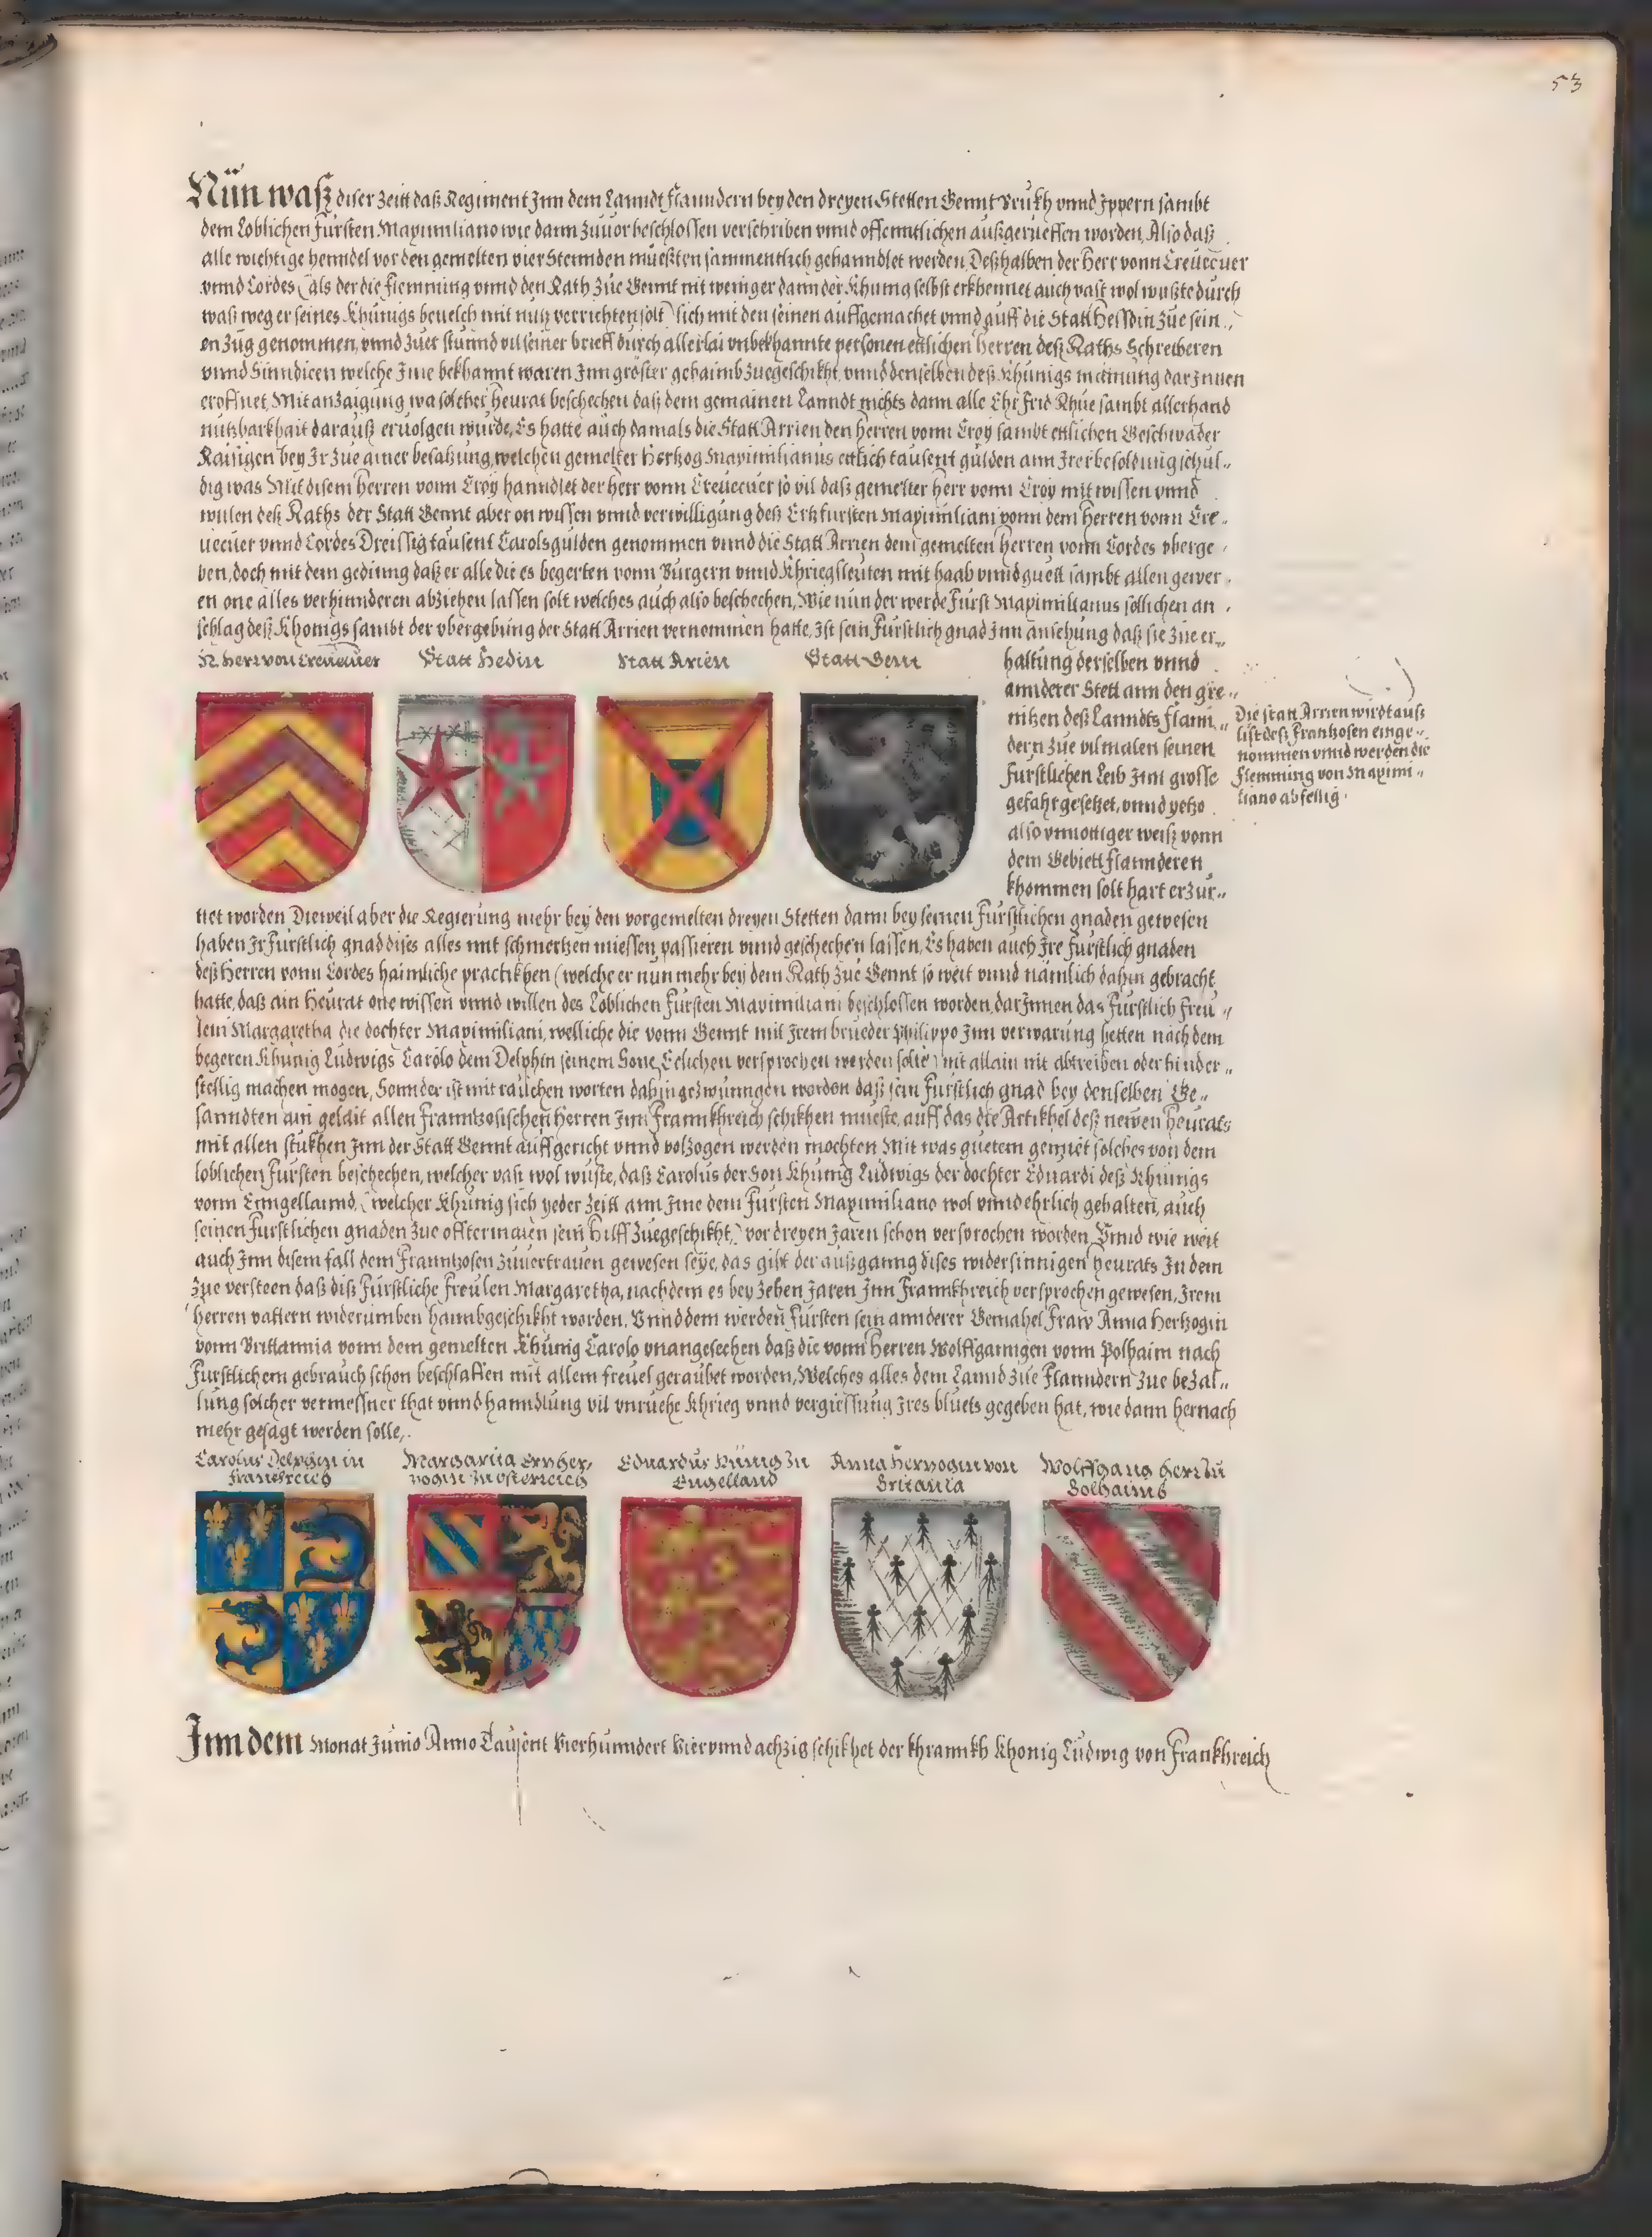 53
Nün waß diser Zeitt daß Regiment Jnn dem Lanndt Flanndern bey den dreyen Stetten Gennt Brukh vnnd Jppern sambt
dem Loblichen fürsten Maximiliano wie dann Zuuor beschlossen verschriben vnnd offenntlichen außgerüeffen worden, Also daß
alle wichtige henndel vor den gemelten vier Stennden müeßten sammentlich gehanndlet werden, Deßhalben der Herr vonn Creuecuer
vnnd Cordes (als der die flemming vnnd den Rath Zue Gennt nit weniger dann der Khunig selbst erkhennet auch vast wol wußte durch
waß weg er seines Khünigs beuelch mit nutz verrichten solt) sich mit den seinen auffgemachet vnnd auff die Statt Hessdin Zue sein
en Zug genommen, vnnd Zuer stunnd vil seiner brieff durch allerlai vnbekhannte personen ettlichen Herren deß Raths Schreiberen
vnnd Sinndicen welche Jme bekhannt waren Jnn gröster gehaimb Zuegeschikht, vnnd denselben deß Khünigs mainung dar Jnnen
eröffnet, Mit anzaigung wa solcher heurat beschechen daß dem gemainen Lanndt nichts dann alle Ehr Frid Rhue sambt allerhand
nutzbarkhait darauß eruolgen wurde, Es hatte auch damals die Statt Arrien den Herren vonn Croy sambt ettlichen Geschwader
Raisigen bey Jr Zue ainer besatzung, welchen gemelter Hertzog Maximilianus ettlich tausent gulden ann Jrer besoldung schul-
dig was Mit disem Herren vonn Croy hanndlet der herr vonn Creuecuer so vil daß gemelter herr vonn Croy mit wissen vnnd
willen deß Raths der Statt Gennt aber on wissen vnnd verwilligung deß Ertzfürsten Maximiliani vonn dem Herren vonn Cre-
uecuer vnnd Cordes Dreissig tausent Carolsgulden genommen vnnd die Statt Arrien dem gemelten Herren vonn Cordes vberge-
ben, doch mit dem gedinng daß er alle die es begerten vonn Burgern vnnd Khriegsleuten mit haab vnnd guett sambt allen gewer-
en one alles verhinnderen abziehen lassen solt welches auch also beschechen, Wie nun der werde Fürst Maximilianus söllichen an-
schlag deß Khonigs sambt der vbergebung der Statt Arrien vernommen hatte, Jst sein Fürstlich gnad Jnn ansehung daß sie Zue er-
H. Herr von Creuecuer
Statt Hedin
Statt Arien
Statt Genn
haltung derselben vnnd
annderer Stett ann den gre-
nitzen deß Lanndts Flann-
dern Zue vil malen seinen
Fürstlichen Leib Jnn grosse
gefahr gesetzet, vnnd yetzo
also vnnottiger weiß vonn
dem Gebiett Flannderen
khommen solt hart erzür-
Die statt Arrien wirdt auß
list deß Frantzosen einge-
nommen vnnd werden die
Flemming von Maximi-
liano abfellig.
net worden Dieweil aber die Regierung mehr bey den vorgemelten dreyen Stetten dann bey seinen Fürstlichen gnaden gewesen
haben Jr Fürstlich gnad dises alles mit schmertzen miessen passieren vnnd geschechen lassen, Es haben auch Jre Fürstlich gnaden
deß Herren vonn Cordes haimliche practikhen (welche er nun mehr bey dem Rath Zue Gennt so weit vnnd nämlich dahin gebracht
hatte, daß ain Heurat one wissen vnnd willen des Loblichen Fürsten Maximiliani beschlossen worden, darJnnen das Fürstlich Freu-
lein Margaretha die dochter Maximiliani, welliche die vonn Gennt mit Jrem brueder Philippo Jnn verwarung hetten nach dem
begeren Khünig Ludwigs Carolo dem Delphin seinem Sone Eelichen versprochen werden solte) nit allain nit abtreiben oder hinder-
stellig machen mogen, Sonnder ist mit raülchen worten dahin gezwunngen worden daß sein Fürstlich gnad bey denselben Ge-
sanndten ain gelait allen Franntzosischen Herren Jnn Frannkhreich schikhen mueste, auff das die Artikhel deß newen Heurats
mit allen stukhen Jnn der Statt Gennt auffgericht vnnd volzogen werden mochten Mit was guetem gemüet solches von dem
loblichen Fürsten beschechen, welcher vast wol wuste, daß Carolus der Son Khünig Ludwigs der dochter Eduardi deß Khünigs
vonn Ennngellannd, (welcher Khünig sich yeder Zeitt ann Jme dem Fürsten Maximiliano wol vnnd ehrlich gehalten, auch
seinen Fürstlichen gnaden Zue offtermalen sein hilff Zuegeschikht,) vor dreyen Jaren schon versprochen worden, Vnnd wie weit
auch Jnn disem fall dem Franntzosen Zuuertrauen gewesen seye, das gibt der außganng dises widersinnigen heurats Zu dem
Zue versteen daß diß Fürstliche Freulen Margaretha, nachdem es bey Zehen Jaren Jnn Frannkhreich versprochen gewesen, Jrem
Herren vattern widerumben haimbgeschikht worden, Vnnd dem werden Fürsten sein annderer Gemahel Fraw Anna Hertzogin
vonn Brittannia vonn dem gemelten Khünig Carolo vnangesechen daß die vonn Herren Wolffganngen vonn Polhaim nach
Fürstlichem gebrauch schon beschlaffen mit allem freuel geraubet worden, Welches alles dem Lannd Zue Flanndern Zue bezal-
lung solcher vermessner that vnnd hanndlung vil vnruehe Khrieg vnnd vergiessung Jres bluets gegeben hat, wie dann hernach
mehr gesagt werden solle,.
Carolus Delphin in
Franckreich
Margarita Ertzher-
zogin zu Osterreich
Eduardus Künig zu
Engelland
Anna Hertzogin von
Britania
Wolffgang Herr zu
Bolhaimb
Jnn dem Monat Junio Anno Tausent Vierhunndert Viervnndachzig schikhet der khrannkh Khonig Ludwig von Frankhreich